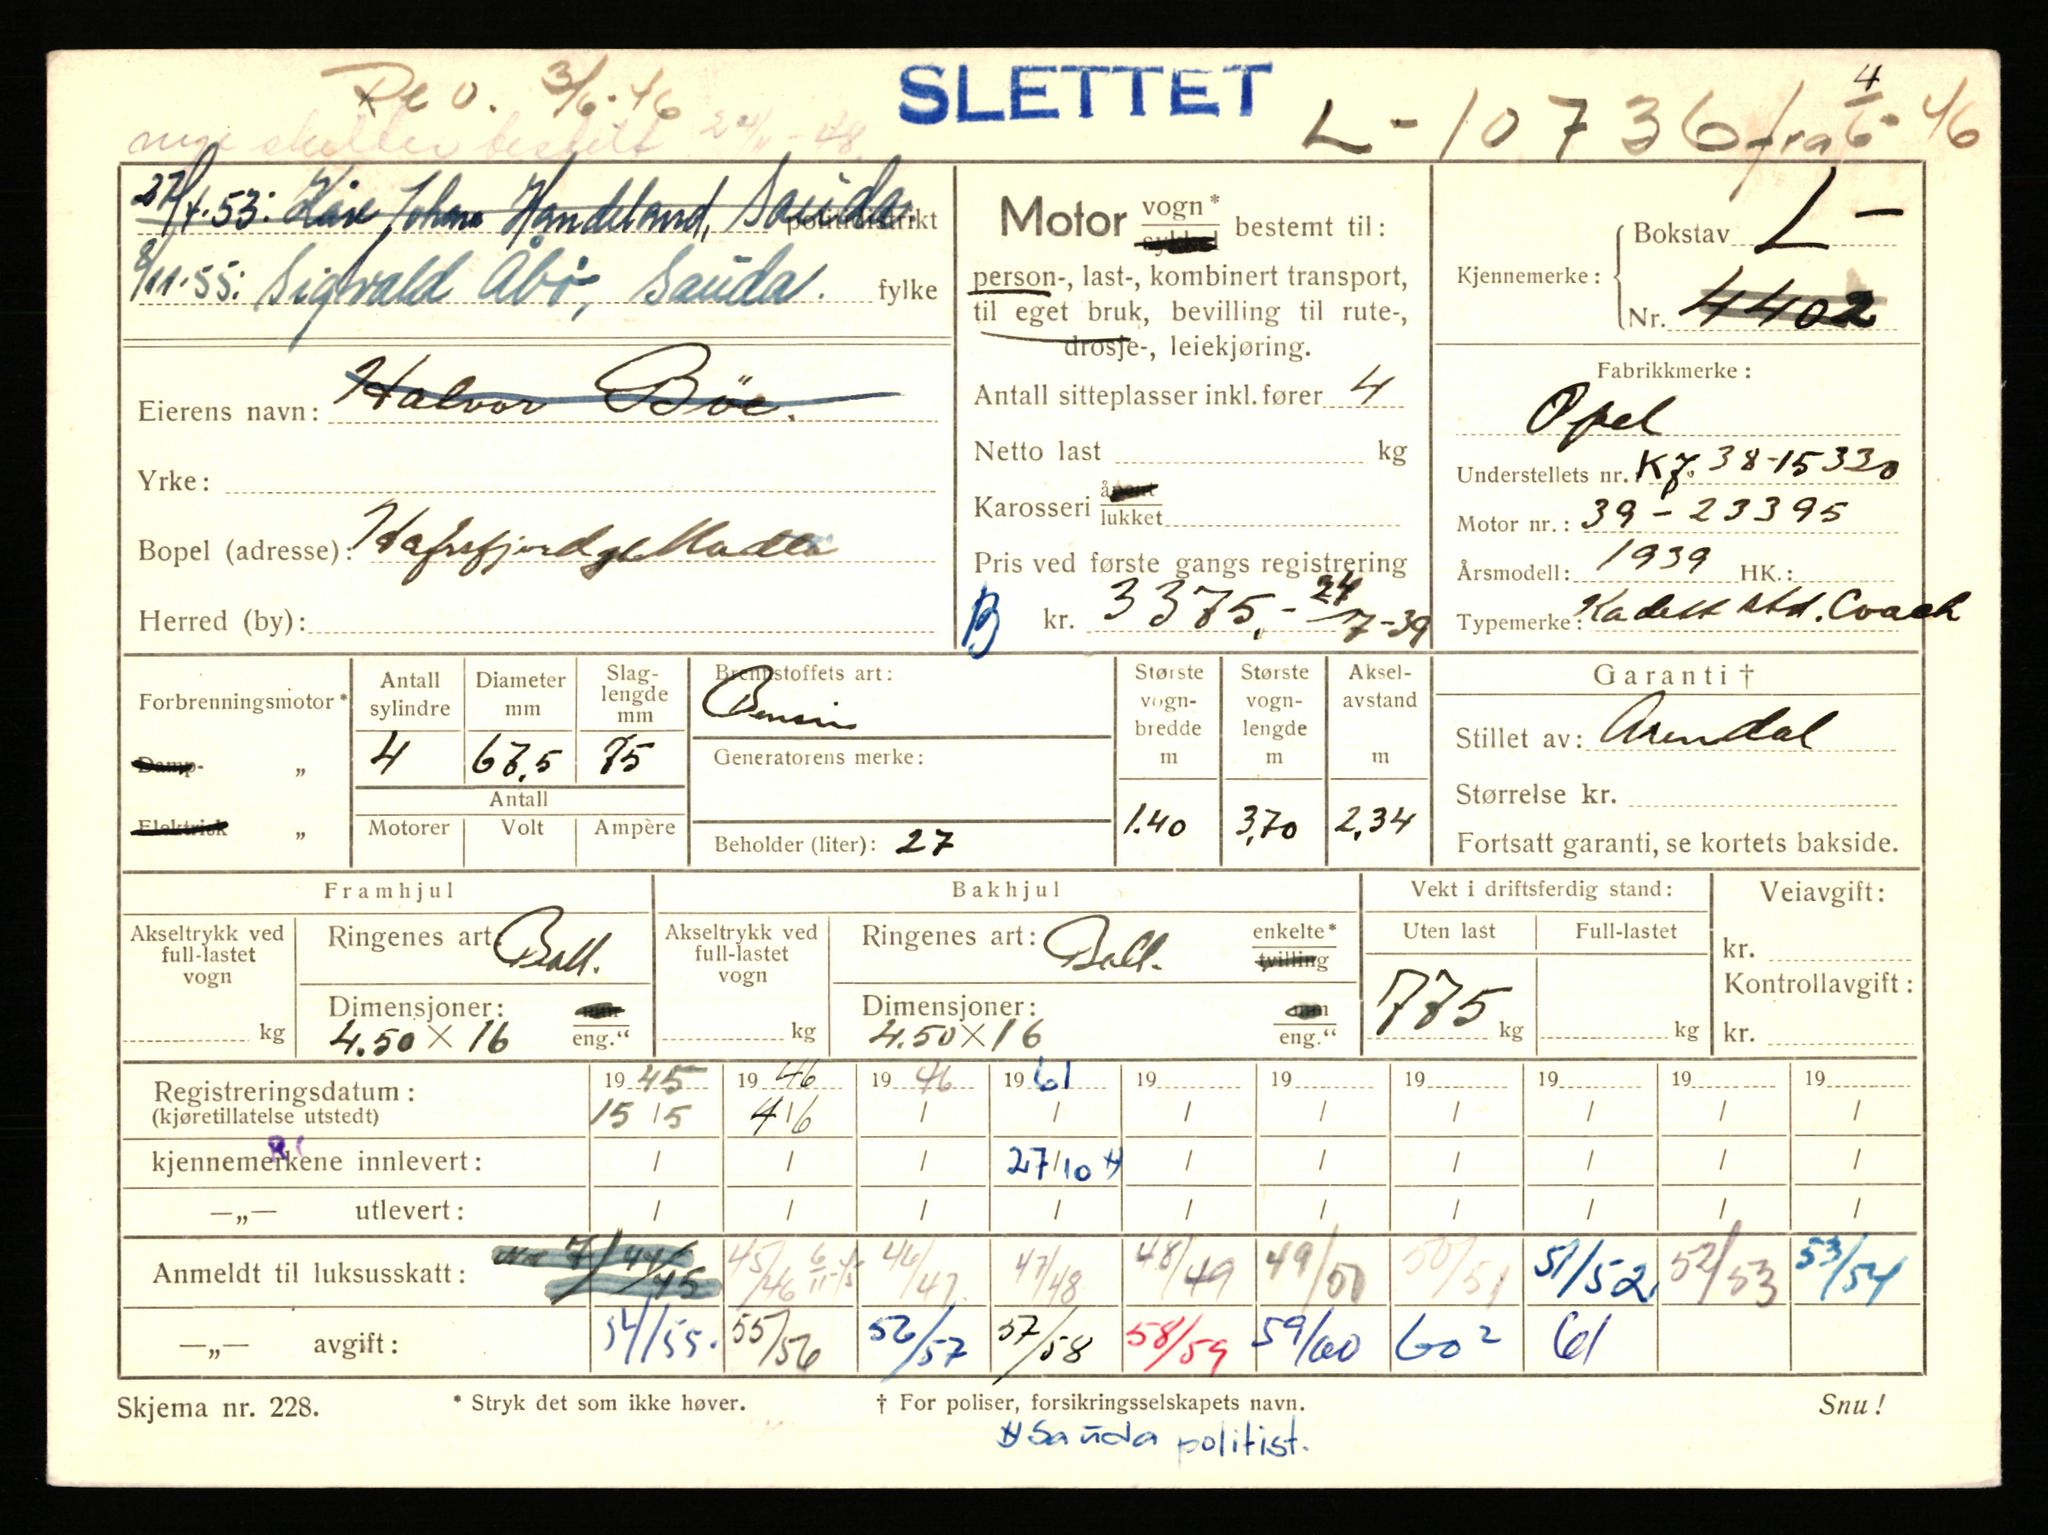 Rev. 3/6-46
SLETTET
L-10736 fra 4/6-46
nye skilter bestilt 24/11-48.
27/4-53: Kåre Johan Handeland, Sauda. politidistrikt
8/11-55: Sigvald Åbø, Sauda. fylke
Eierens navn: Halvor Böe.
Yrke:
Bopel (adresse): Hafrsfjordgt Madla
Herred (by):
Motor vogn* sykkel bestemt til:
person-, last-, kombinert transport,
til eget bruk, bevilling til rute-,
drosje-, leiekjøring.
Antall sitteplasser inkl. fører 4
Netto last kg
Karosseri åpent lukket
Pris ved første gangs registrering
B kr. 3375,- 24/7-39
Kjennemerke: Bokstav L-
Nr. 4402
Fabrikkmerke:
Opel
Understellets nr. KJ. 38-15330
Motor nr.: 39-23395
Årsmodell: 1939 HK.:
Typemerke: Kadett std. Coach
Forbrenningsmotor*
Damp- „
Elektrisk „
Antall sylindre 4
Diameter mm 67,5
Slaglengde mm 75
Antall
Motorer Volt Ampère
Brennstoffets art:
Bensin
Generatorens merke:
Beholder (liter): 27
Største vognbredde m 1.40
Største vognlengde m 3,70
Akselavstand m 2,34
Garanti †
Stillet av: Arendal
Størrelse kr.
Fortsatt garanti, se kortets bakside.
Framhjul
Akseltrykk ved full-lastet vogn kg
Ringenes art: Ball.
Dimensjoner: mm
4.50 x 16 eng."
Bakhjul
Akseltrykk ved full-lastet vogn kg
Ringenes art: Ball. enkelte* tvilling
Dimensjoner: mm
4.50 x 16 eng."
Vekt i driftsferdig stand:
Uten last Full-lastet
775 kg kg
Veiavgift:
kr.
Kontrollavgift:
kr.
Registreringsdatum: 1945 1946 1946 1961 19 19 19 19 19 19
(kjøretillatelse utstedt) 15/5 4/6 / / / / / / / /
kjennemerkene innlevert: / / / 27/10 # / / / / / /
—„— utlevert: / / / / / / / / / /
Anmeldt til luksusskatt: 44/45 45/46 6/11-45 46/47 47/48 48/49 49/50 50/51 51/52 52/53 53/54
—„— avgift: 54/55. 55/56 56/57 57/58 58/59 59/60 60² 61
Skjema nr. 228. * Stryk det som ikke høver. † For poliser, forsikringsselskapets navn. Snu!
# Sauda politist.